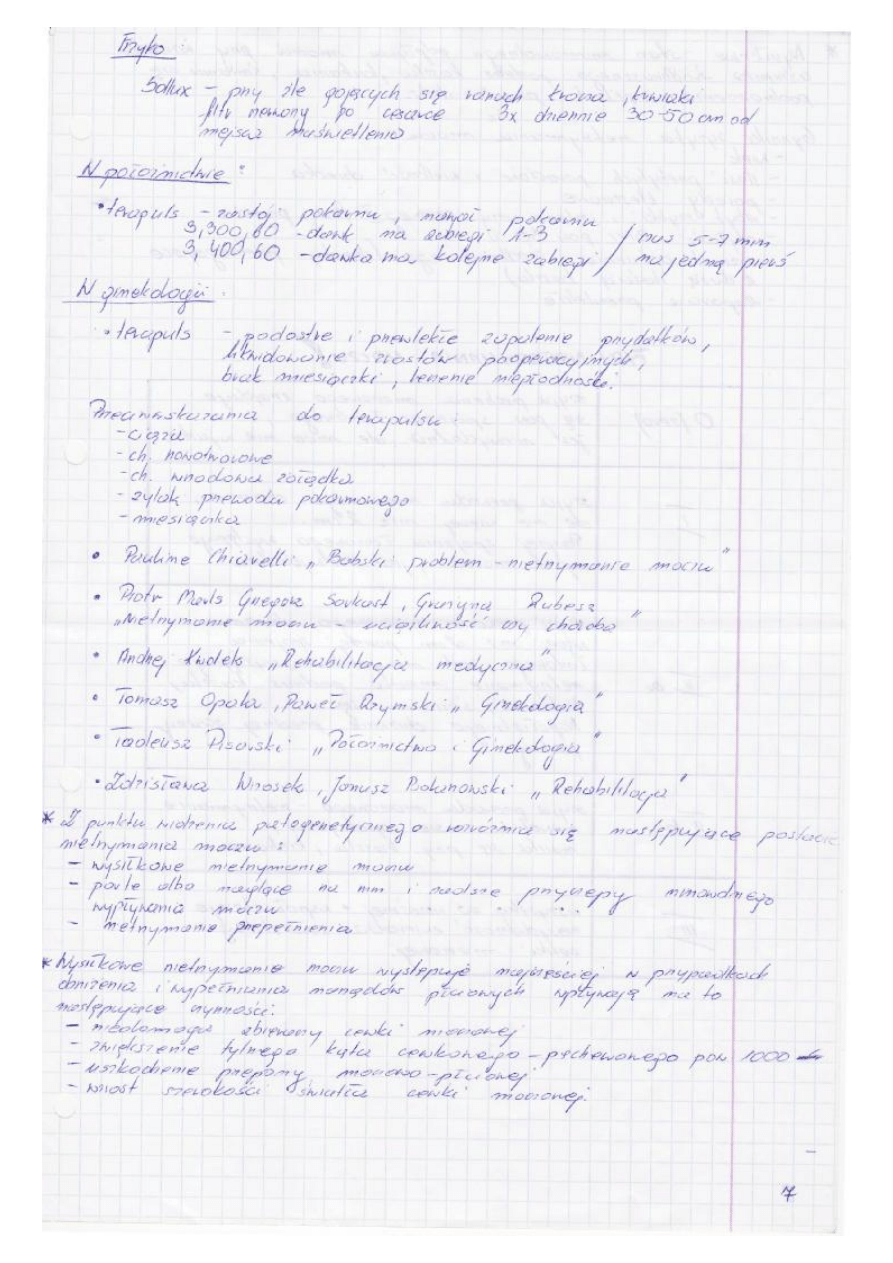 Fizyko
Sollux – przy źle gojących się ranach krocza, krwiaki
filtr czerwony po cesarce 3x dziennie 30-50 cm od
miejsca naświetlenia
W położnictwie:
• terapuls – zastój pokarmu, nawał pokarmu
3,300,60 – dawk na zabiegi 1-3 / czas 5-7 min
3,400,60 – dawka na kolejne zabiegi / na jedną pierś
W ginekologii:
• terapuls – podostre i przewlekłe zapalenie przydatków,
likwidowanie zrostów pooperacyjnych,
brak miesiączki, leczenie niepłodności.
Przeciwskazania do terapulsu:
– ciąża
– ch. nowotworowe
– ch. wrzodowa żołądka
– żylaki przewodu pokarmowego
– miesiączka
• Pauline Chiarelli „Babski problem – nietrzymanie moczu"
• Piotr Grzegorz Surkont, Grażyna
„Nietrzymanie moczu – uciążliwość czy choroba"
• Andrzej Kwolek „Rehabilitacja medyczna"
• Tomasz Opala, Paweł Rzymski „Ginekologia"
• Tadeusz Pisarski „Położnictwo i Ginekologia"
• Zdzisława Wrzosek, Janusz Bolanowski „Rehabilitacja"
* Z punktu widzenia patogenetycznego rozróżnia się następujące postacie
nietrzymania moczu:
– wysiłkowe nietrzymanie moczu
– parte albo naglące na mm i rzadsze przyczepy mimowolnego
wypływania moczu
– nietrzymanie przepełnienia
* Wysiłkowe nietrzymanie moczu występuje najczęściej w przypadkach
obniżenia i wypełniania narządów płciowych wpływają na to
następujące czynności:
– niedomaga zbieraczy cewki moczowej
– zwiększenie tylnego kąta cewkowego – pęcherzowego pow 1000
– uszkodzenie przepony moczowo-płciowej
– wzrost szerokości światła cewki moczowej.
7